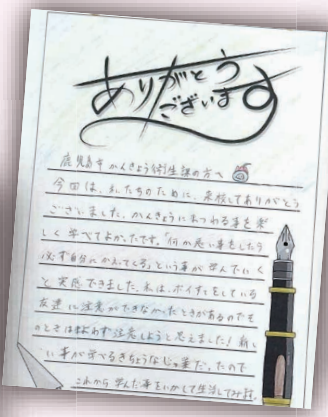 ありがとう
ございます
鹿児島市かんきょう衛生課の方へ
今回は、私たちのために、来校してありがとう
ございました。かんきょうにまつわる事を楽
しく学べてよかったです。「何か悪い事をしたら
必ず自分にかえってくる」という事が学んでいく
と実感できました。私は、ポイすてをしている
友達に注意ができなかったときがあるのでも
のときはまよわず注意しようと思えました!新し
い事が学べるきちょうなじゅ業だったので
これから学んだ事をいかして生活してみ